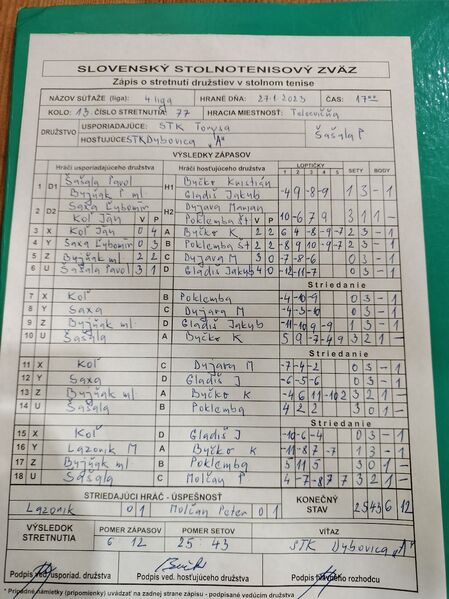 SLOVENSKÝ STOLNOTENISOVÝ ZVÄZ
Zápis o stretnutí družstiev v stolnom tenise
NÁZOV SÚŤAŽE (liga): 4 liga HRANÉ DŇA: 27.1.2023 ČAS: 17
KOLO: 13 ČÍSLO STRETNUTIA: 77 HRACIA MIESTNOSŤ: Telocvičňa
DRUŽSTVO USPORIADAJÚCE: STK Torysa Šašala P
HOSŤUJÚCE: STK Dybovica "A"
VÝSLEDKY ZÁPASOV
Hráči usporiadajúceho družstva Hráči hosťujúceho družstva LOPTIČKY SETY BODY
1 2 3 4 5
1 D1 Šašala Pavol H1 Byčko Kristián -4 9 -8 -9 1 3 - 1
Byjňak P ml Gladiš Jakub
2 D2 Saxa Ľubomír H2 Dujava Marian
Koľ Ján V P Poklemba Št V P 10 -6 7 9 3 1 1 -
3 X Koľ Ján 0 4 A Byčko K 2 2 6 4 -8 -9 -7 2 3 - 1
4 Y Saxa Ľubomír 0 3 B Poklemba Št 2 2 -8 9 10 -9 -7 2 3 - 1
5 Z Byjňak ml 2 2 C Dujava M 3 0 -7 -8 -6 0 3 - 1
6 U Šašala Pavol 3 1 D Gladiš Jakub 4 0 -12 -11 -7 0 3 - 1
Striedanie
7 X Koľ B Poklemba -4 -10 -9 0 3 - 1
8 Y Saxa C Dujava M -4 -3 -10 0 3 - 1
9 Z Byjňak ml D Gladiš Jakub -11 -10 9 -9 1 3 - 1
10 U Šašala A Byčko K 5 9 -7 -4 9 3 2 1 -
Striedanie
11 X Koľ C Dujava M -7 -4 -2 0 3 - 1
12 Y Saxa D Gladiš J -6 -5 -6 0 3 - 1
13 Z Byjňak ml A Byčko K -4 6 11 -10 2 3 2 1 -
14 U Šašala B Poklemba 4 2 2 3 0 1 -
Striedanie
15 X Koľ D Gladiš J -10 -6 -4 0 3 - 1
16 Y Lazorík M A Byčko K -11 -8 7 -7 1 3 - 1
17 Z Byjňak ml B Poklemba 5 11 5 3 0 1 -
18 U Šašala C Molčan P 4 -7 -8 7 7 3 2 1 -
STRIEDAJÚCI HRÁČ - ÚSPEŠNOSŤ KONEČNÝ STAV 25 43 6 12
Lazorik 0 1 Molčan Peter 0 1
VÝSLEDOK STRETNUTIA POMER ZÁPASOV POMER SETOV VÍŤAZ
6 12 25 43 STK Dybovica "A"
Podpis ved. usporiad. družstva Podpis ved. hosťujúceho družstva Podpis hlavného rozhodcu
* Prípadné námietky (pripomienky) uvádzať na zadnej strane zápisu - podpísané vedúcim družstva